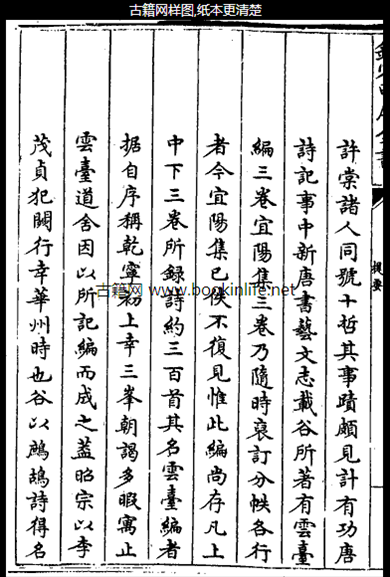 古籍网样图,纸本更清楚
提要
許棠諸人同號十哲其事蹟頗見計有功唐
詩記事中新唐書藝文志載谷所著有雲臺
編三卷宜陽集三卷乃隨時裒訂分帙各行
者今宜陽集已佚不復見惟此編尚存凡上
中下三卷所録詩約三百首其名雲臺編者
据自序稱乾寧初上幸三峯朝謁多暇寓止
雲臺道舍因以所記編而成之蓋昭宗以李
茂貞犯闕行幸華州時也谷以鷓鴣詩得名
古籍网 www.bookinlife.net